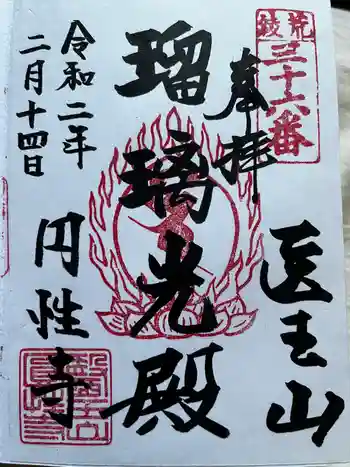 荒綾三十六番
奉拝
医王山
瑠璃光殿
令和二年
二月十四日
円性寺